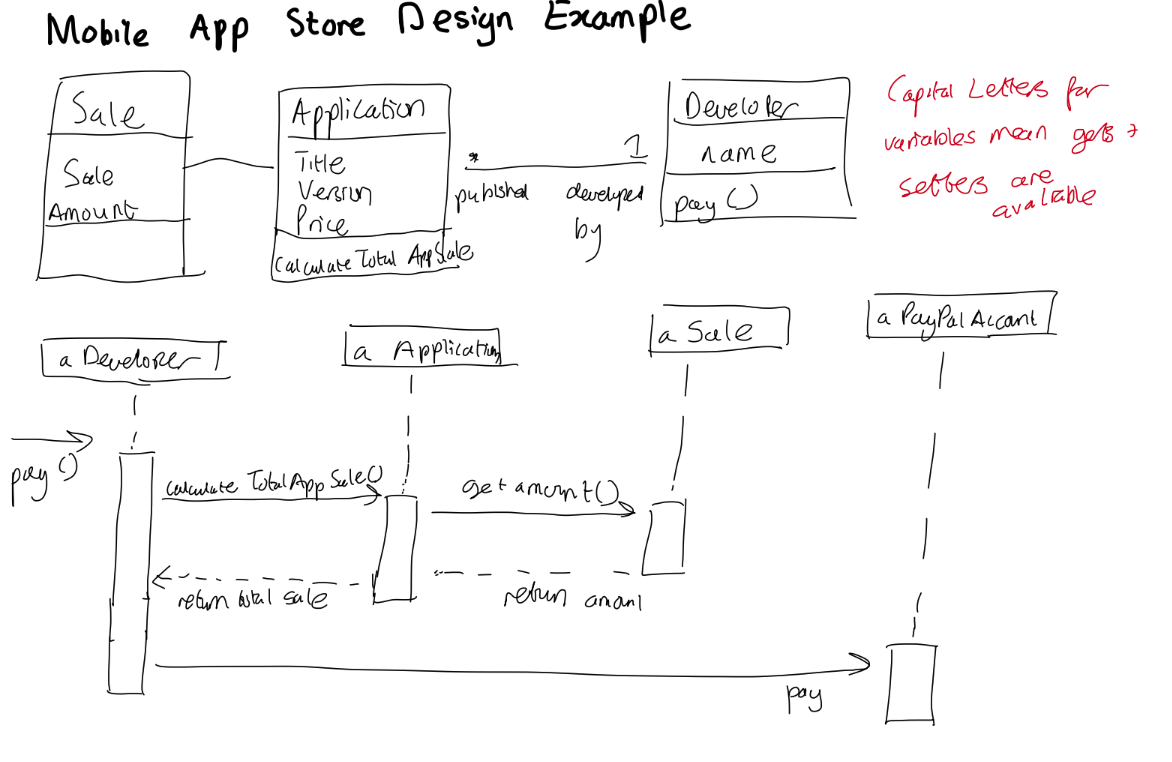 Mobile App Store Design Example
Sale
Sale
Amount
Application
Title
Version
Price
Calculate Total App Sale
*
published
1
developed
by
Developer
name
pay ()
Capital Letters for
variables mean gets +
setters are
avaliable
a Developer
a Application
a Sale
a PayPal Account
pay ()
calculate Total App Sale()
get amount()
return total sale
return amount
pay